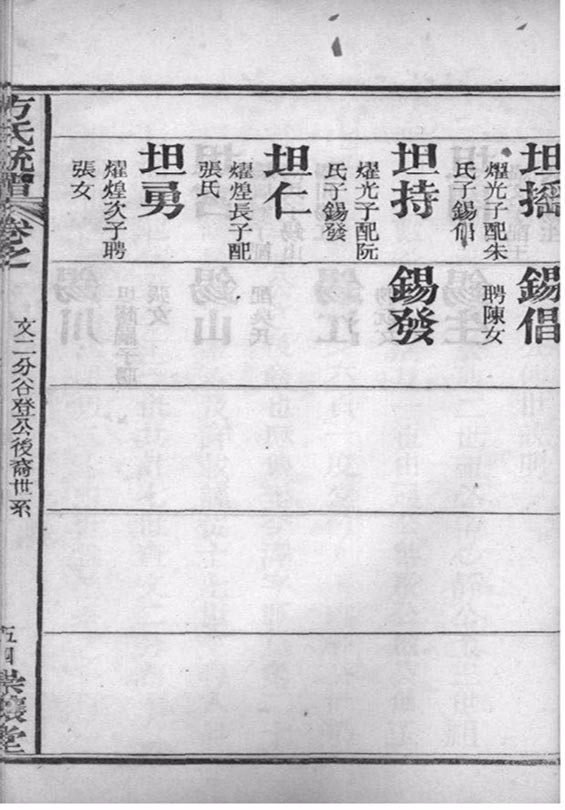 坦
燿光子配朱
氏子錫倡
錫倡
聘陳女
坦持
燿光子配阮
氏子錫發
錫發
坦仁
燿煌長子配
張氏
坦勇
燿煌次子聘
張女
方氏統譜
卷之
文二分谷登公後裔世系
五四
崇讓堂